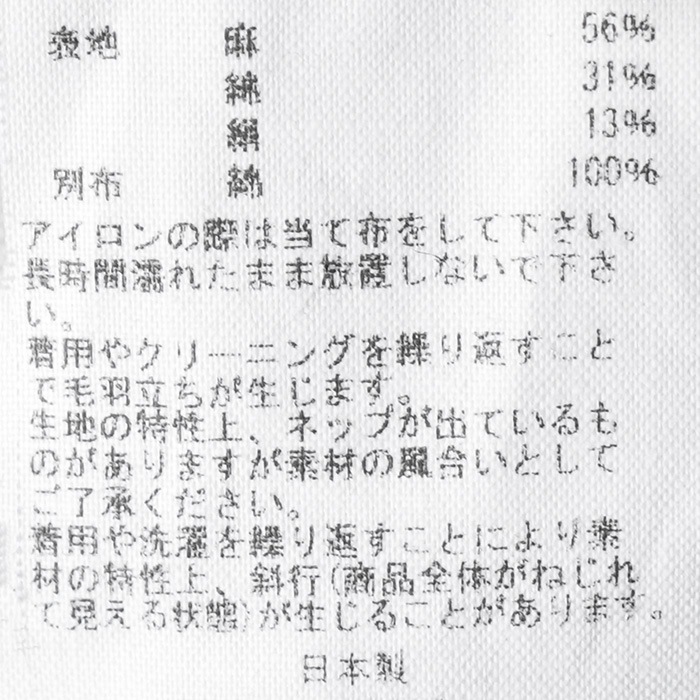 表地 麻 56%
綿 31%
絹 13%
別布 綿 100%
アイロンの際は当て布をして下さい。
長時間濡れたまま放置しないで下さ
い。
着用やクリーニングを繰り返すこと
で毛羽立ちが生じます。
生地の特性上、ネップが出ているも
のがありますが素材の風合いとして
ご了承ください。
着用や洗濯を繰り返すことにより素
材の特性上、斜行(商品全体がねじれ
て見える状態)が生じることがあります。
日本製